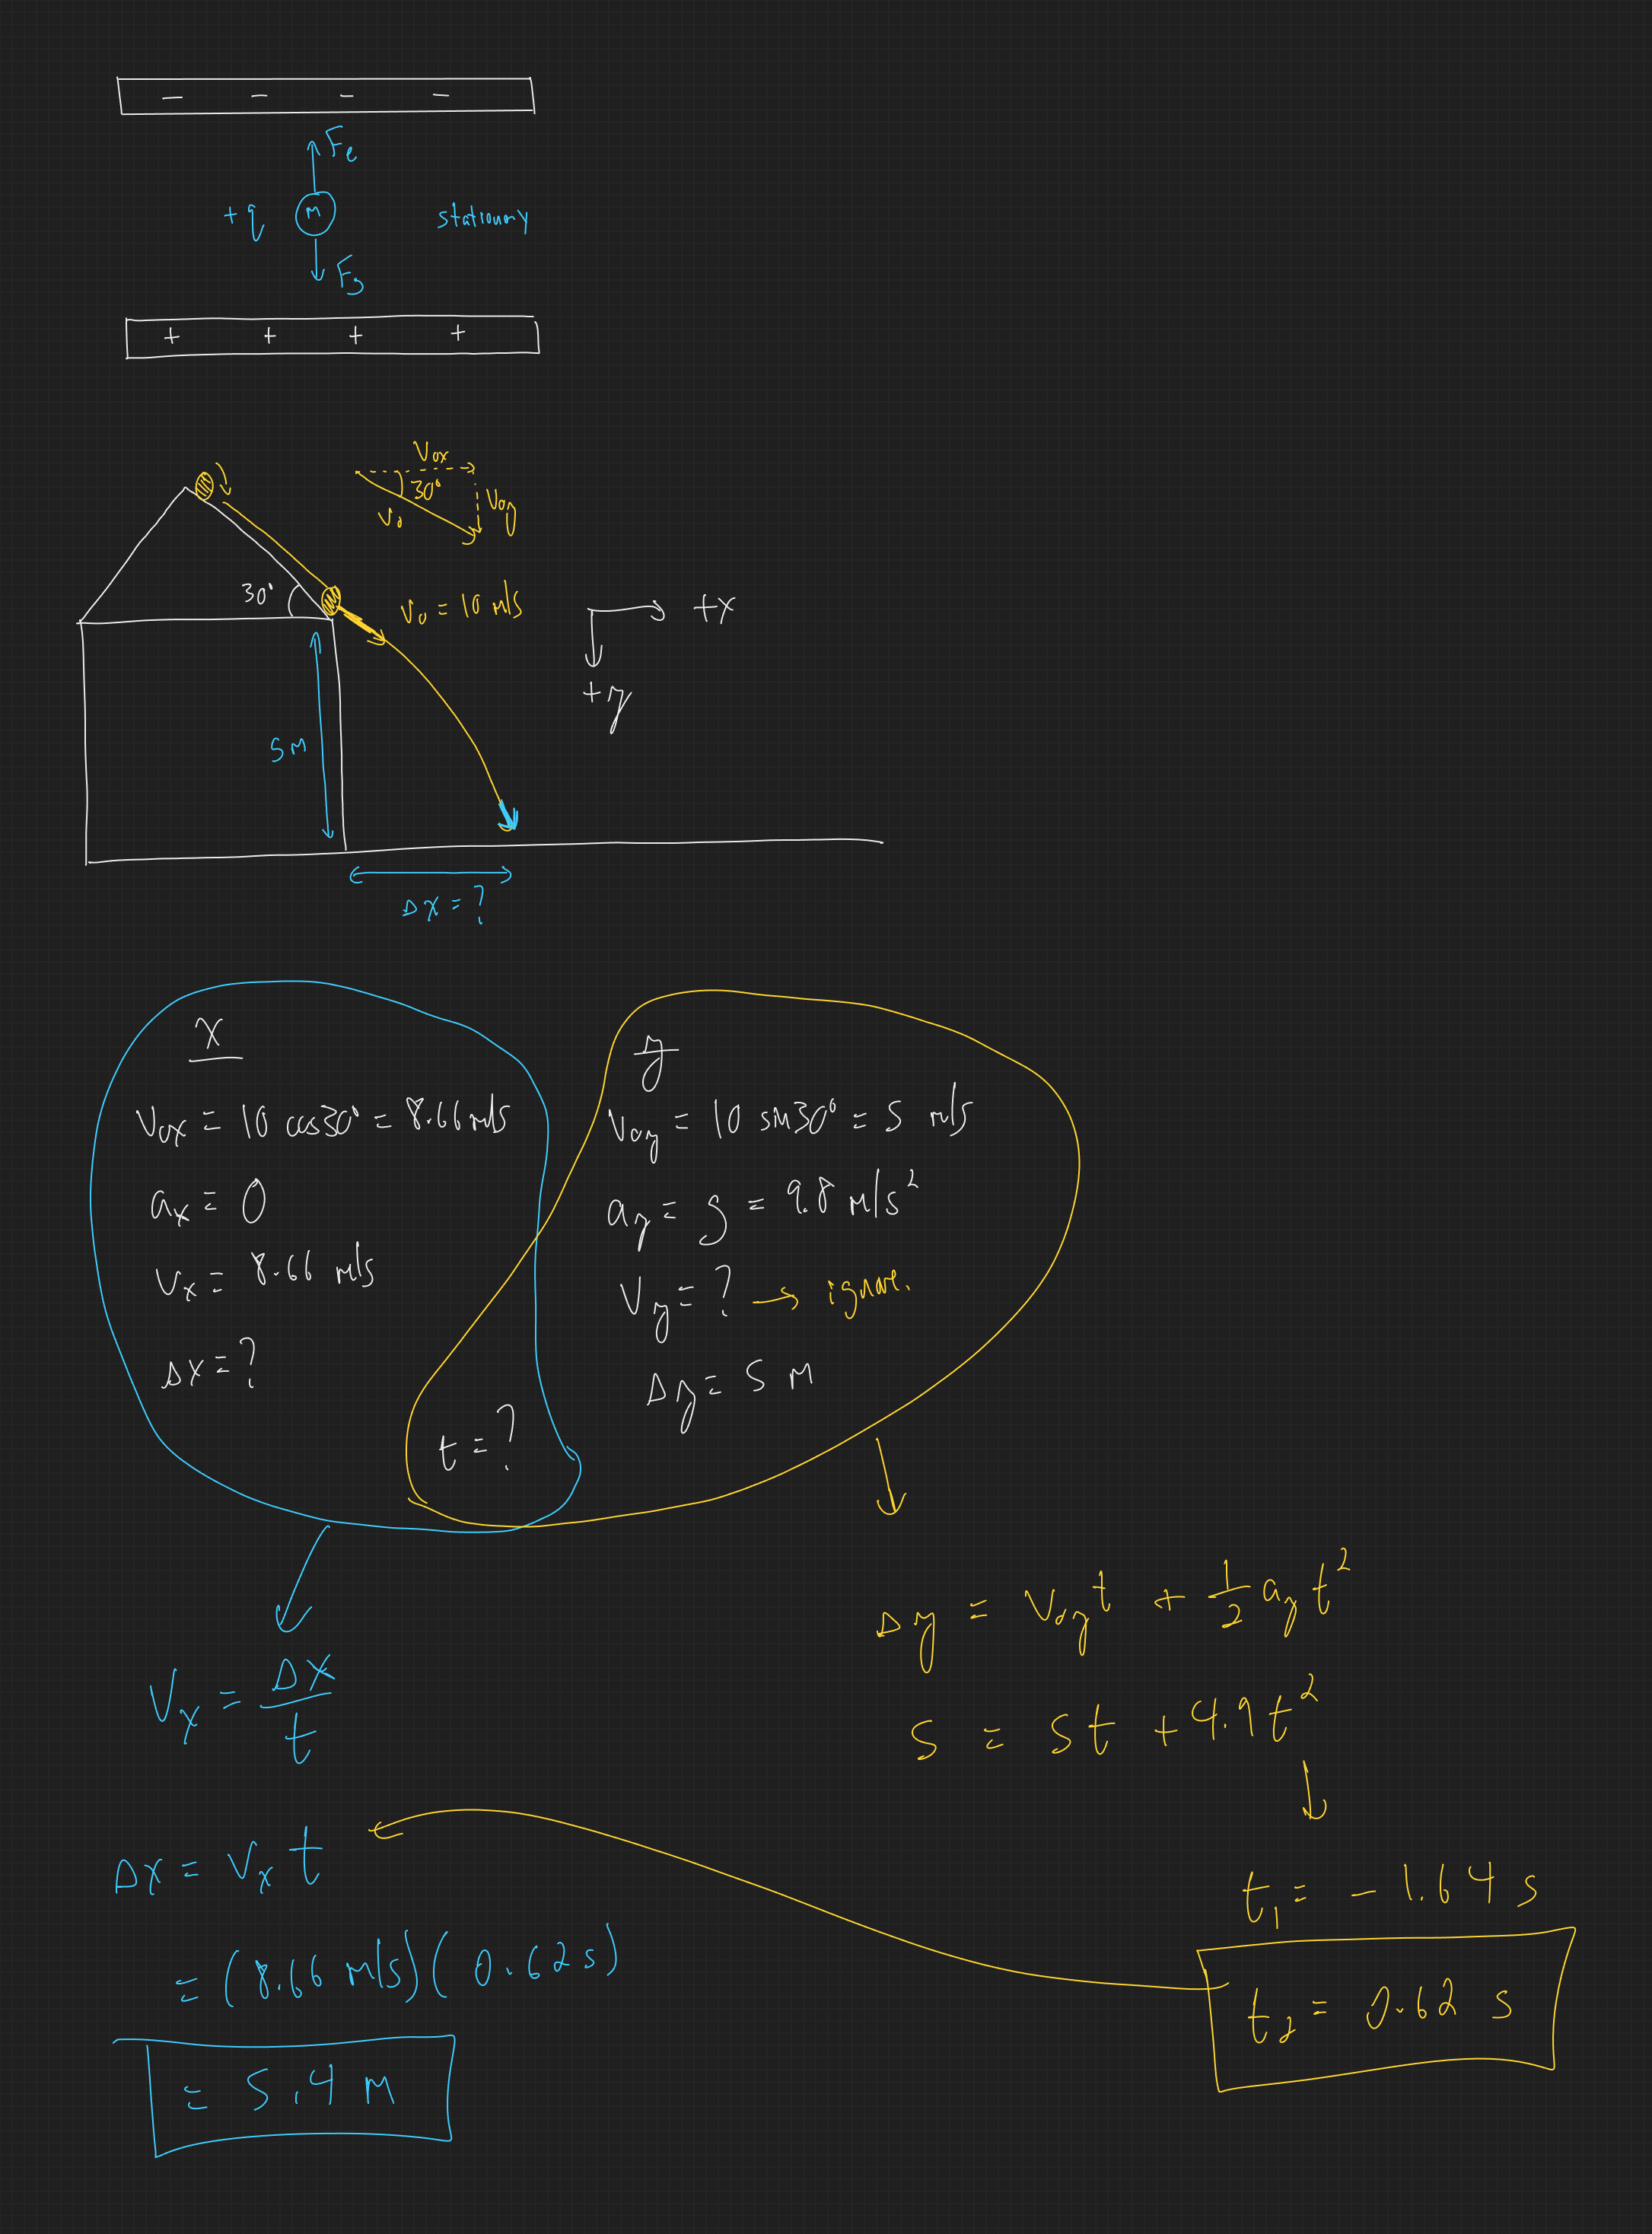 − − − −
Fe
+q M stationary
Fg
+ + + +
Vox
30°
Voy
Vo
30°
Vo = 10 m/s
+x
+y
5 m
Δx = ?
x
Vox = 10 cos30° = 8.66 m/s
ax = 0
Vx = 8.66 m/s
Δx = ?
t = ?
y
Voy = 10 sin30° = 5 m/s
ay = g = 9.8 m/s²
Vy = ? → ignore.
Δy = 5 m
Vx = Δx/t
Δx = Vx t
= (8.66 m/s)(0.62 s)
= 5.4 m
Δy = Voy t + 1/2 ay t²
5 = 5t + 4.9t²
t1 = −1.64 s
t2 = 0.62 s